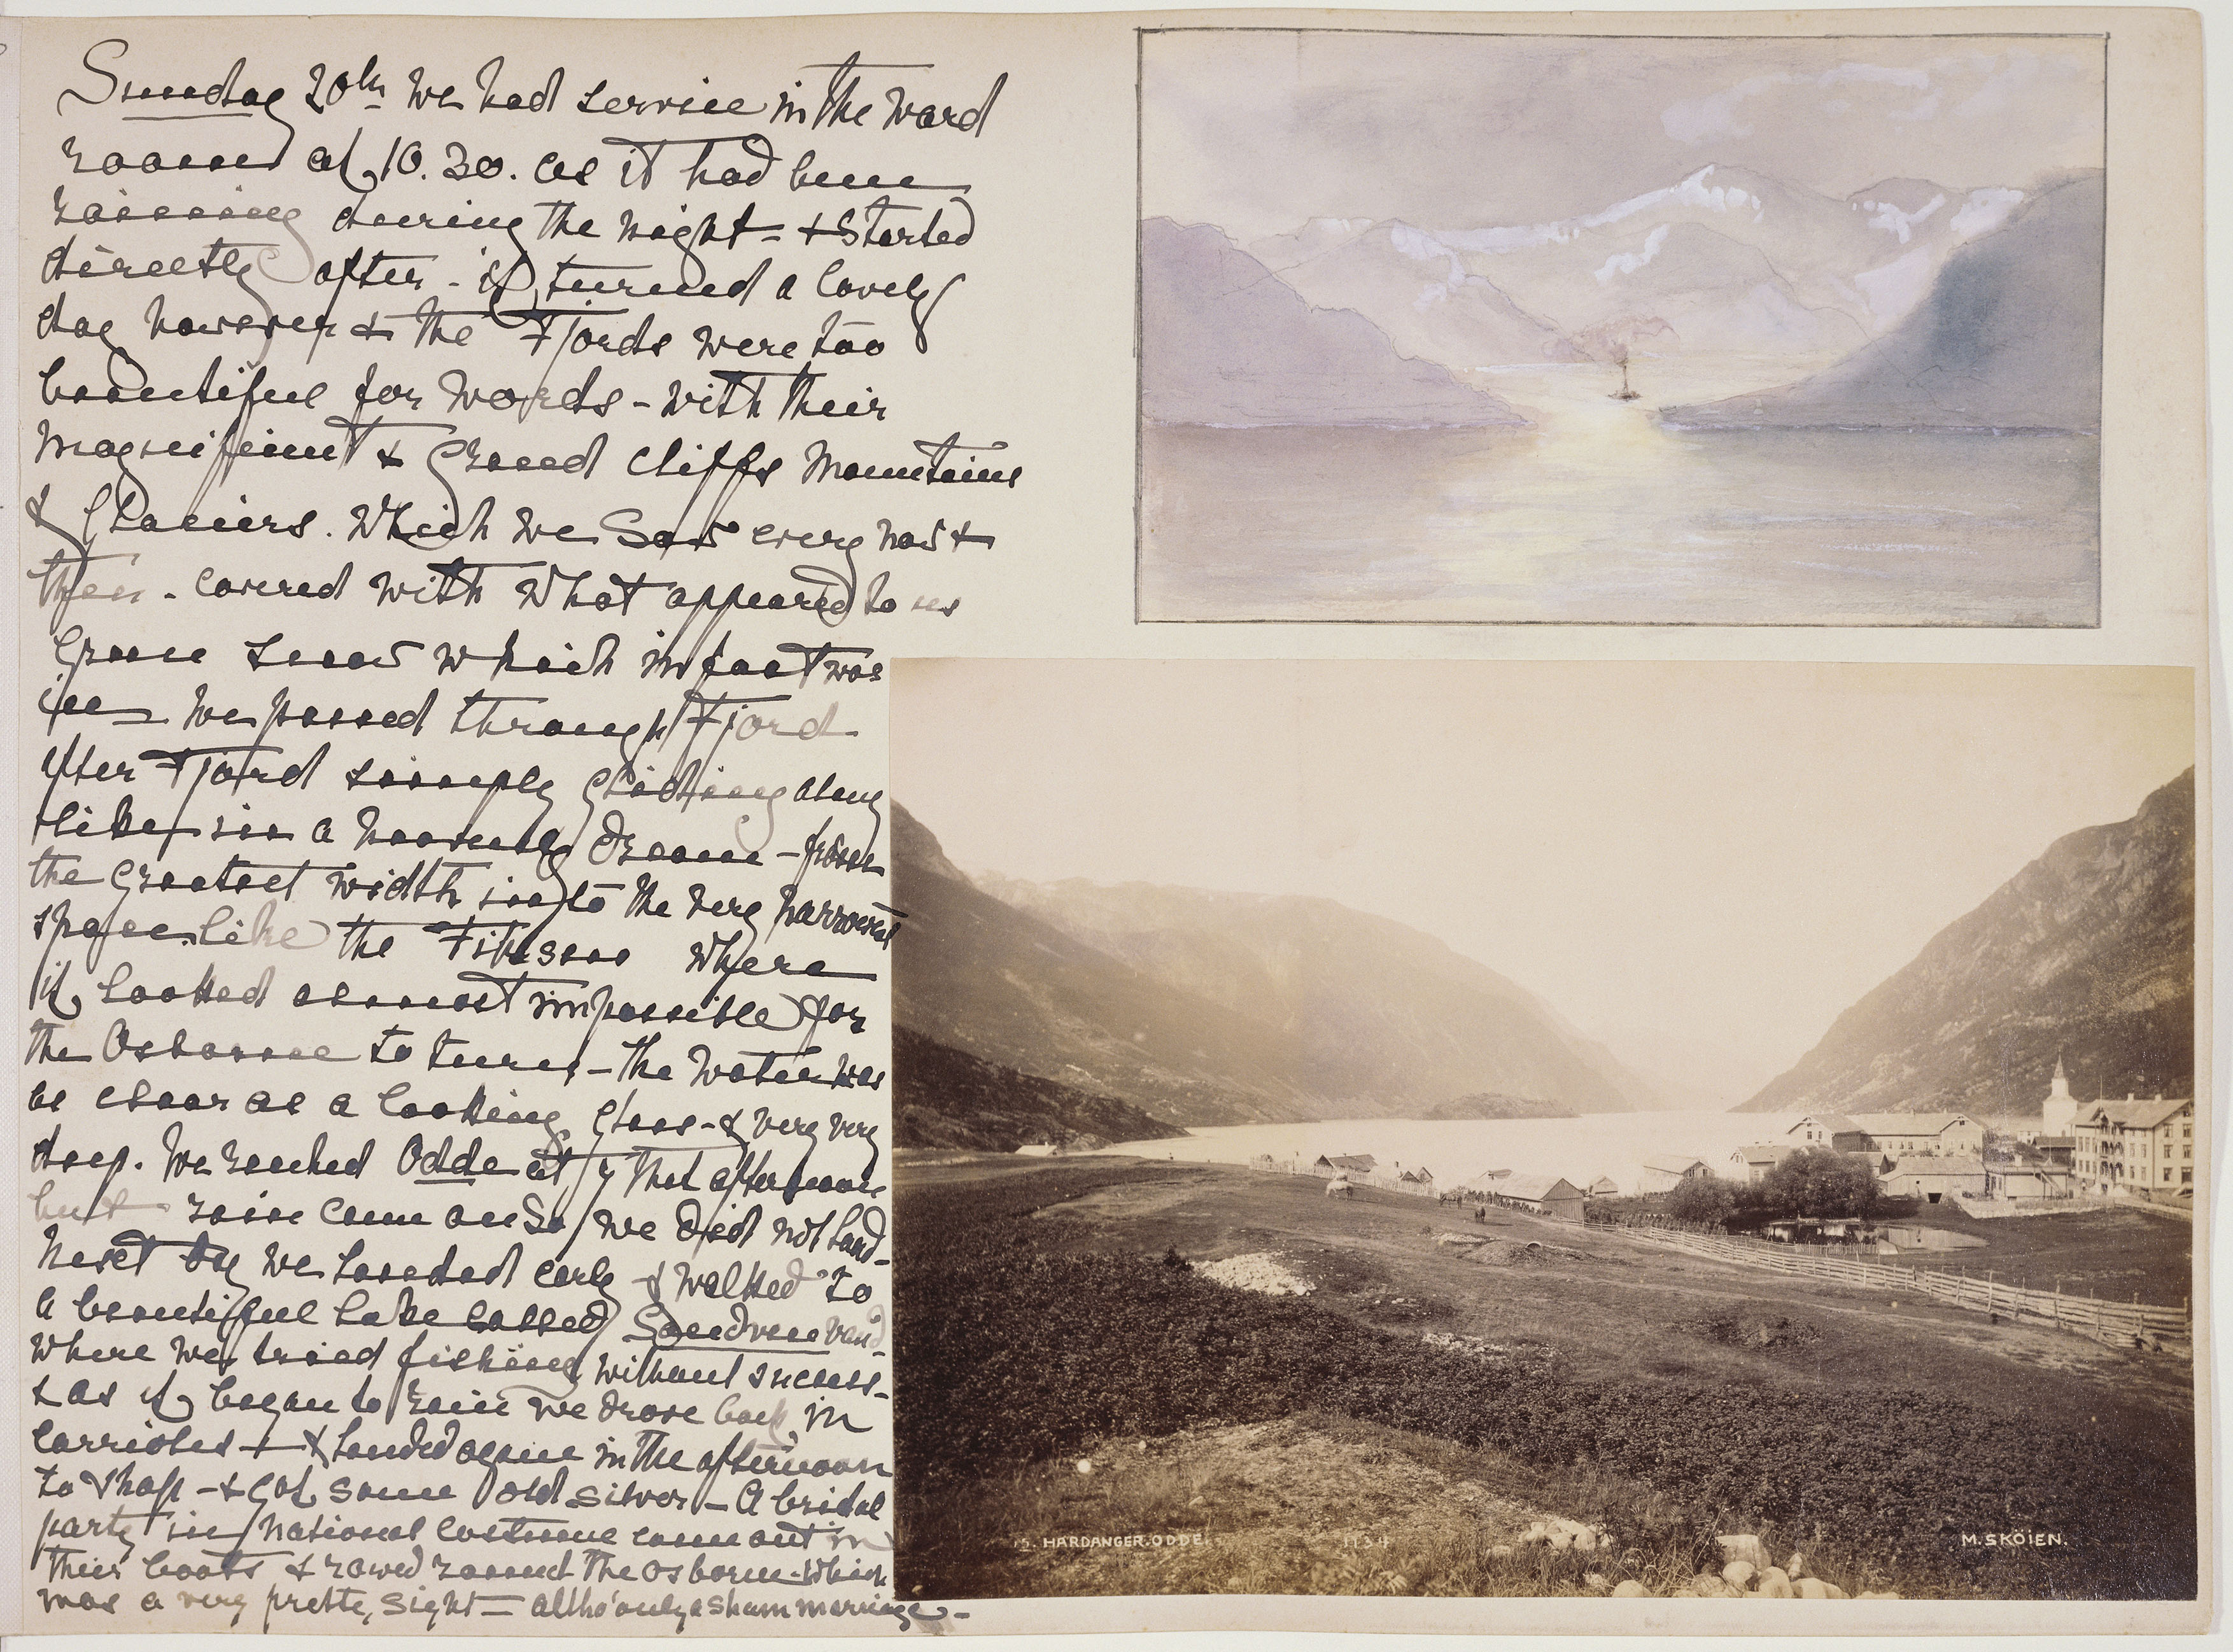 Sunday 20th we had service in the ward
room at 10.30. as it had been
raining during the night - & started
directly after - it turned a lovely
day however & the Fjords were too
beautiful for words - with their
magnificent & Grand cliffs Mountains
& Glaciers. Which we saw every now &
then - covered with what appeared to us
Green snow which in fact was
ice we passed through Fjord
after Fjord simply gliding along
like in a heavenly dream - from
the greatest width into the very narrowest
space like the where
it looked almost impossible for
the Osborne to turn - the water was
as clear as a looking glass - & very very
deep. We reached Odde at 7 that afternoon
but rain came on so we did not land -
Next day we landed early & walked to
a beautiful lake called Sandven vand
where we tried fishing without success -
& as it began to rain we drove back in
Carrioles - & landed again in the afternoon
to shop - & got some old silver - A bridal
party in national costume came out in
their boats & rowed round the Osborne which
was a very pretty sight - altho' only a sham marriage -
S. HARDANGER. ODDE. 1134 M. SKÖIEN.